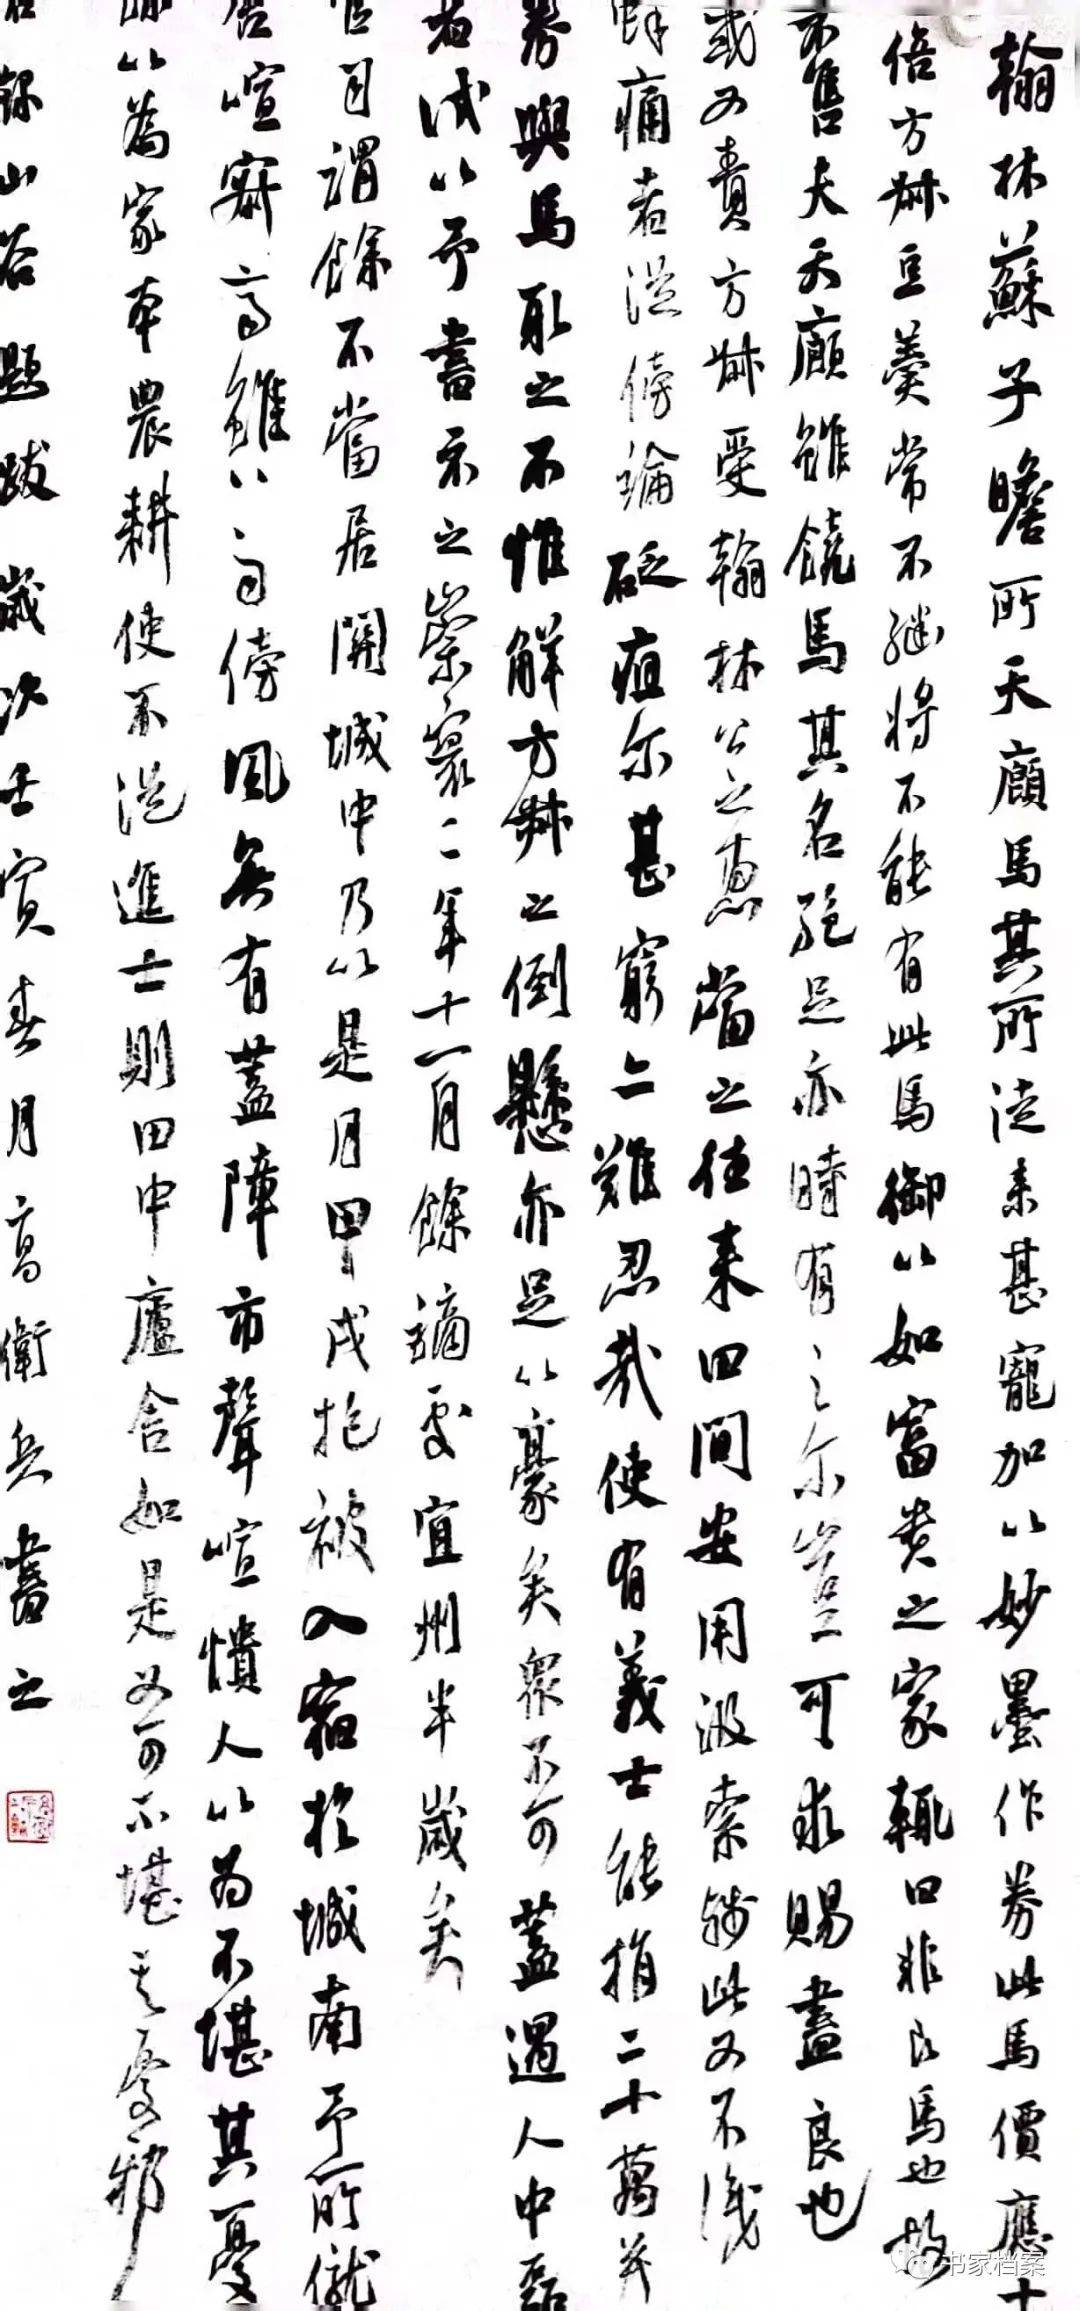 翰林蘇子瞻所天廄馬其所從來甚寵加以妙墨作券此馬價應十
倍方叔豆羹常不繼將不能有此馬御以如富貴之家輒曰非良馬也故
不售夫天廄雖饒馬其名絕足亦時有之爾豈可求賜盡良也
或又責方叔受翰林公之惠當之往来田間安用汲索錢此又不識
蛘痛者從傍論砭疽尔甚窮亦難忍哉使有義士能捐二十萬并
券與馬取之不惟解方叔之倒懸亦足以豪矣眾不可蓋遇人中磊
者試以予書示之崇寧二年十一月餘謫處宜州半歲矣
官司謂餘不當居關城中乃以是月甲戌抱被入宿於城南予所僦
舍喧寂齋雖上雨傍風無有蓋障市聲喧憒人以為不堪其憂
餘以為家本農耕使不從進士則田中廬舍如是又可不堪其憂邪
右錄山谷題跋歲次壬寅春月高衛兵書之
书家档案